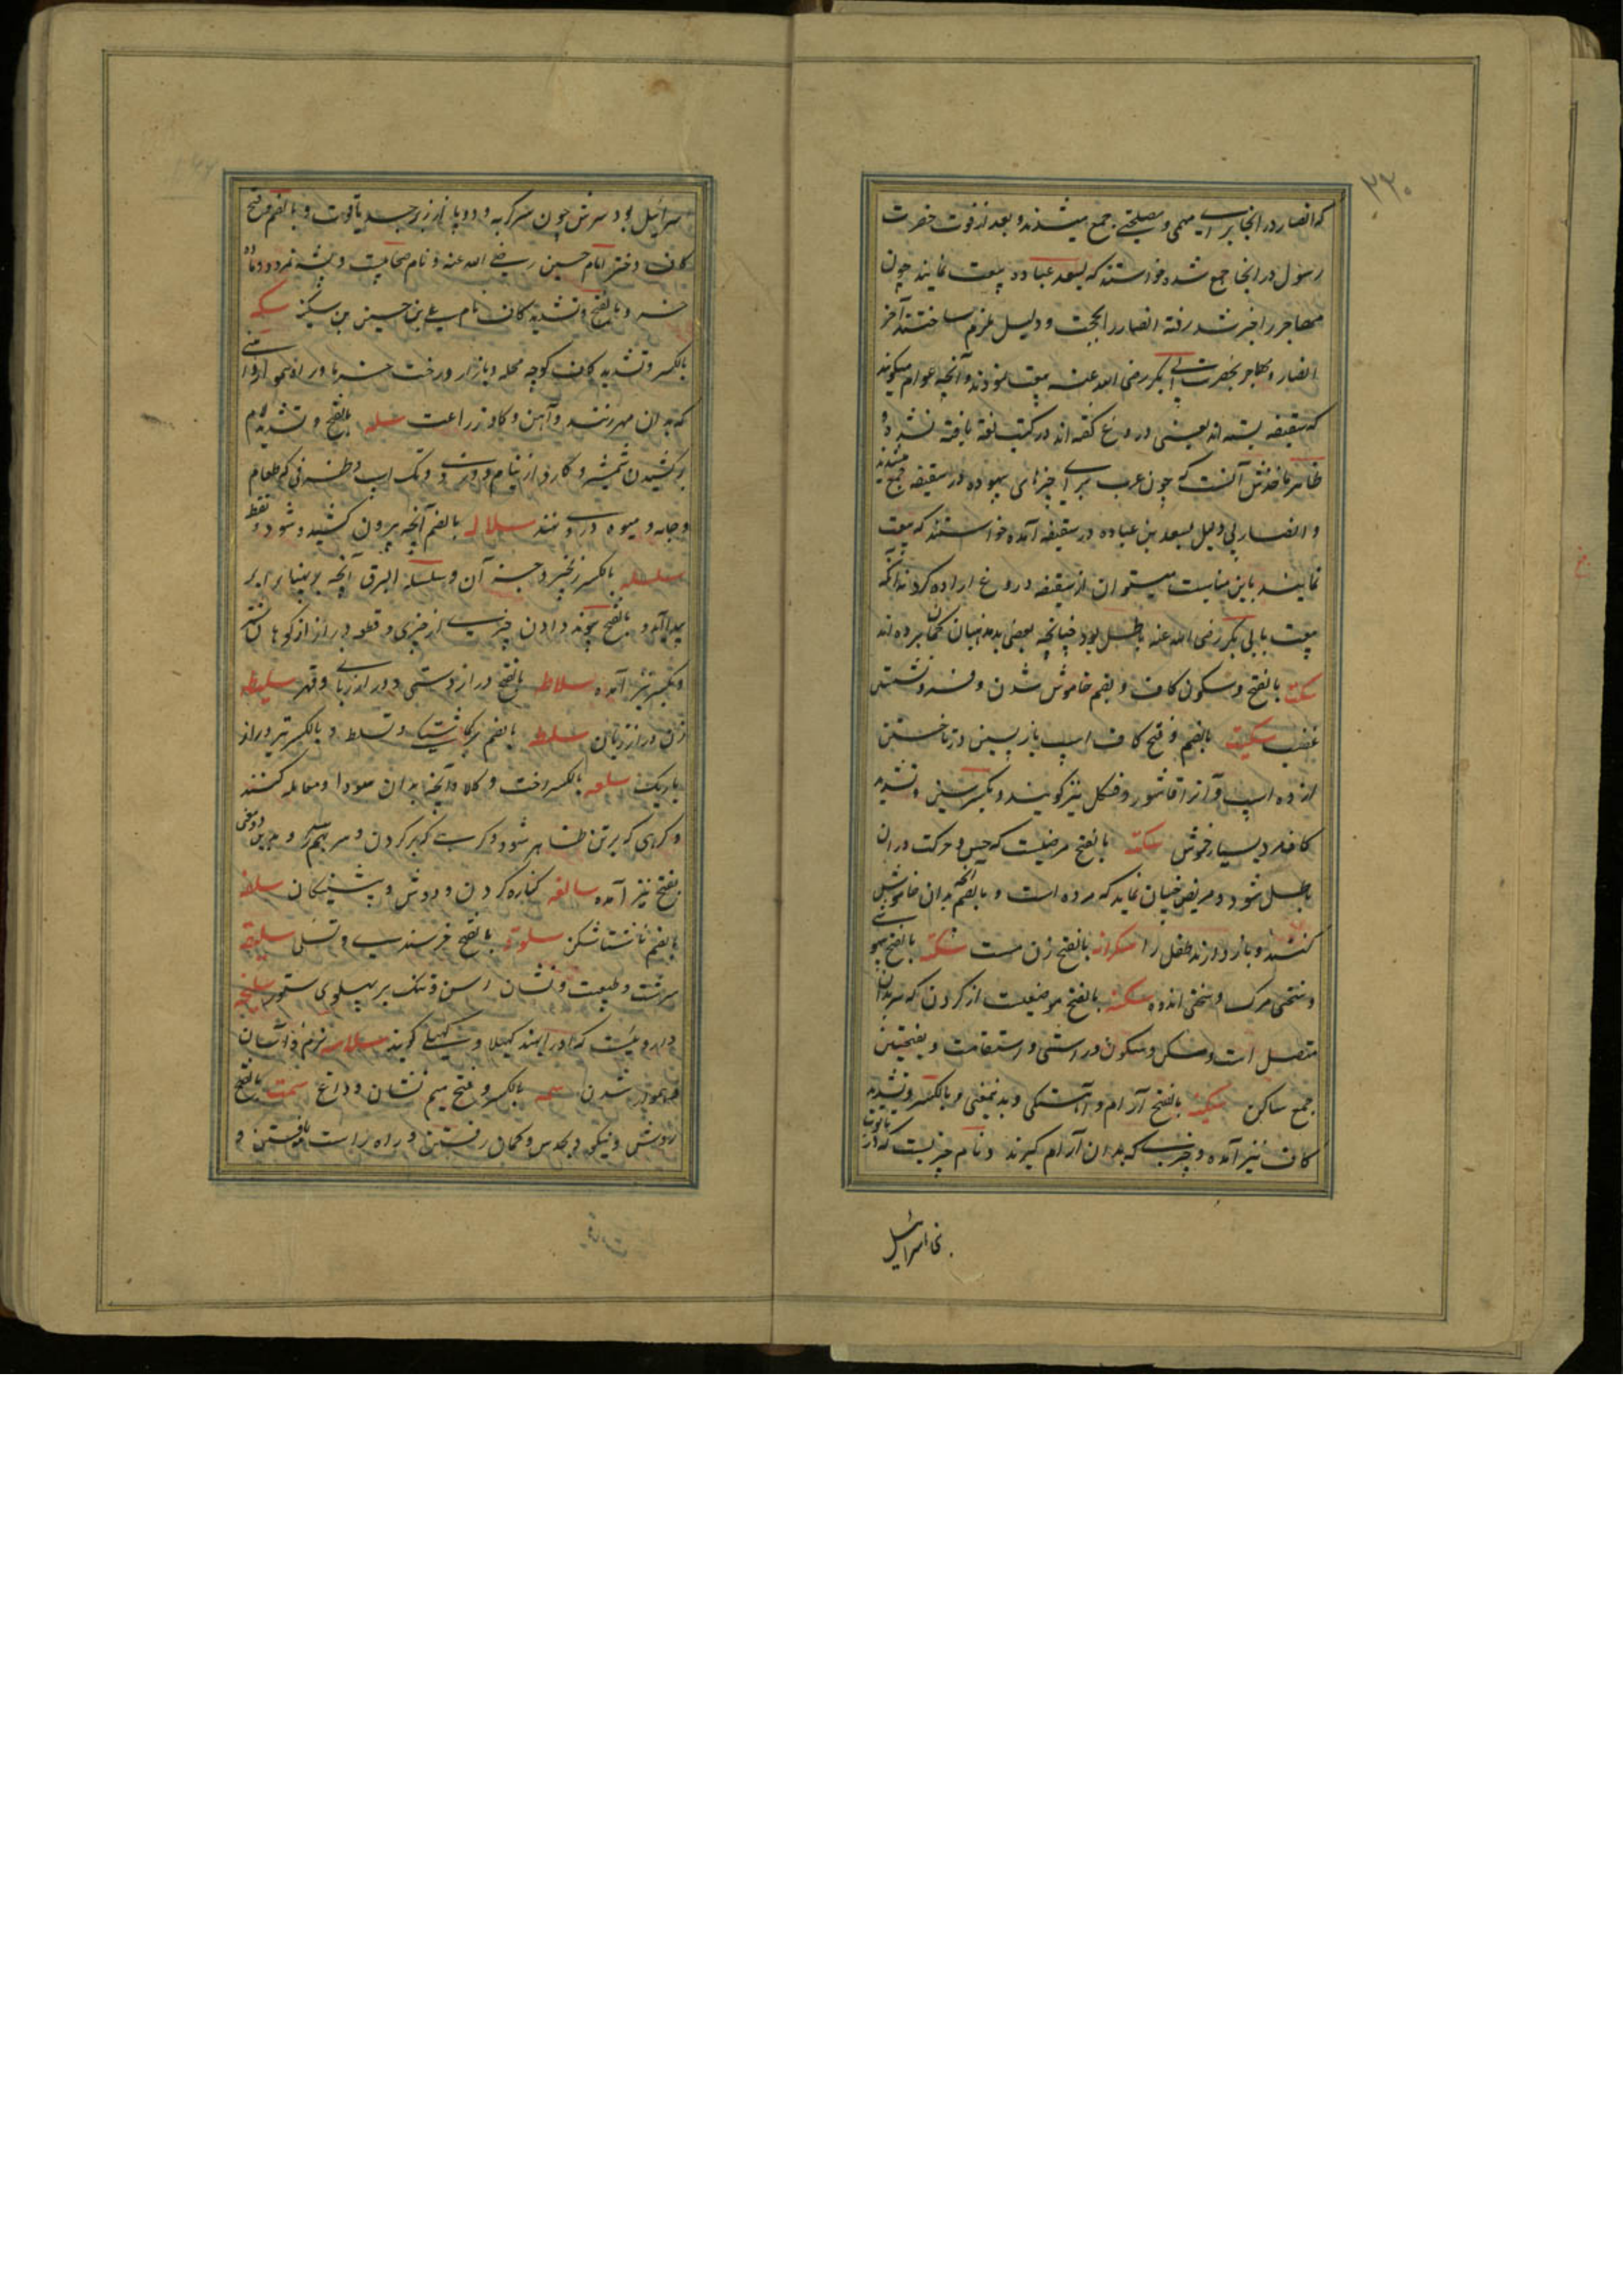 ۲۳۰
که انصار در انجا برای مهمی و مصلحتی جمع میشدند و بعد از فوت حضرت
رسول در انجا جمع شده خواستند که بسعد عباده بیعت نمایند چون
مهاجر را خبر شد رفته انصار را بحجت و دلیل ملزم ساختند آخر
انصار و مهاجر بحضرت ابی بکر رضی الله عنه بیعت نمودند و آنچه عوام میگویند
که سقیفه بسته اند یعنی دروغ گفته اند در کتب لغة یافته نشده و
ظاهرا ماخذش آنست که چون عرب برای چیزهای بیهوده در سقیفه جمع میشدند
و انصار بی دلیل بسعد بن عباده در سقیفه آمده خواستند که بیعت
نمایند باین مناسبت میتوان از سقیفه دروغ اراده کرد نه آنکه
بیعت بابی بکر رضی الله عنه باطل بود چنانچه بعضی بدمذهبان گمان برده اند
سکت بالفتح و سکون کاف و بضم خاموش شدن و فرو نشستن
غضب سکیت بالضم و فتح کاف اسپ بازپسین در تاختن
از ده اسپ و آنرا قاشور و فسکل نیز گویند و بکسر سین و تشدید
کاف مرد بسیار خوش سکته بالفتح مرضیست که حس و حرکت دران
باطل شود و مریض چنان نماید که مرده است و بالضم آنچه بدان خاموش
کنند و باز دارند طفل را سکرانه بالفتح زن مست سکرة بالفتح بیهوشی
و سختی مرگ و سختی اندوه سکنه بالفتح موضعیست از گردن که سر بدان
متصل است و مسکن و سکون و راستی و استقامت و بفتحتین
جمع ساکن سکینه بالفتح آرام و آهستگی و بدینمعنی بالکسر و تشدید
کاف نیز آمده و چیزی که بدان آرام گیرند و نام چیزیست که در تابوت
بنی اسرائیل
سرائیل بود سرش چون سر گربه و دو بال از زبرجد و یاقوت و بالضم و فتح
کاف دختر امام حسین رضی الله عنه و نام صحابیت و پشه نمرود و ماده
خر و بالفتح و تشدید کاف نام علی بن حسین بن سکینه سکه
بالکسر و تشدید کاف کوچه محله و بازار و درخت خرما و راه هموار و آهنی
که بدان مهر زنند و آهن گاو زراعت سله بالفتح و تشدید لام
برکشیدن شمشیر و کارد از نیام و دزدی و تگ اسپ و ظرفی که طعام
و جامه و میوه در و نهند سلاله بالضم آنچه بیرون کشیده شود و نطفه
سلسله بالکسر زنجیر و جز آن و سلسلة البرق آنچه بر پهنای ابر
پیدا آید و بالفتح پیوند دادن چیزی از چیزی و قطعه دراز از کوهان شتر
و بکسر نیز آمده سلاطة بالفتح دراز دستی و دراز زبانی و قهر سلیطه
زن دراز زبان سلطة بالضم و تسلط و بالکسر تیر دراز
باریک سلعه بالکسر رخت و کالا و آنچه بدان سودا و معامله کنند
و گرهی که بر تن ظاهر شود
بفتح نیز آمده سالفه کناره گردن و دوش و پیشینگان سلفه
بالضم ناشتا شکن سلوة بالفتح خرسندی و تسلی سلیقه
سرشت و طبیعت و نشان رسن و تنگ بر پهلوی ستور سلیخه
دارویست که و نرم و آسان
و هموار شدن سمه بالکسر و فتح میم نشان و داغ سمت بالفتح
روش و نیکو و بحدس و گمان رفتن و راه راست یافتن و